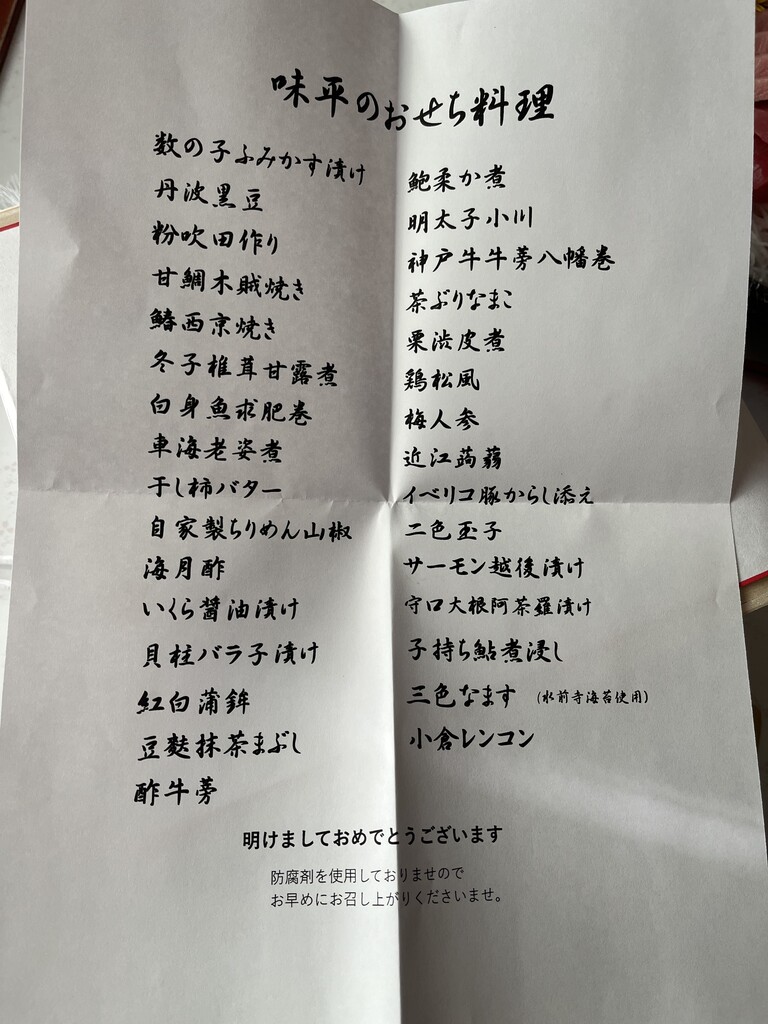 味平のおせち料理
数の子ふみかす漬け
丹波黒豆
粉吹田作り
甘鯛木賊焼き
鰆西京焼き
冬子椎茸甘露煮
白身魚求肥巻
車海老姿煮
干し柿バター
自家製ちりめん山椒
海月酢
いくら醤油漬け
貝柱バラ子漬け
紅白蒲鉾
豆麩抹茶まぶし
酢牛蒡
鮑柔か煮
明太子小川
神戸牛牛蒡八幡巻
茶ぶりなまこ
栗渋皮煮
鶏松風
梅人参
近江蒟蒻
イベリコ豚からし添え
二色玉子
サーモン越後漬け
守口大根阿茶羅漬け
子持ち鮎煮浸し
三色なます (水前寺海苔使用)
小倉レンコン
明けましておめでとうございます
防腐剤を使用しておりませので
お早めにお召し上がりくださいませ。